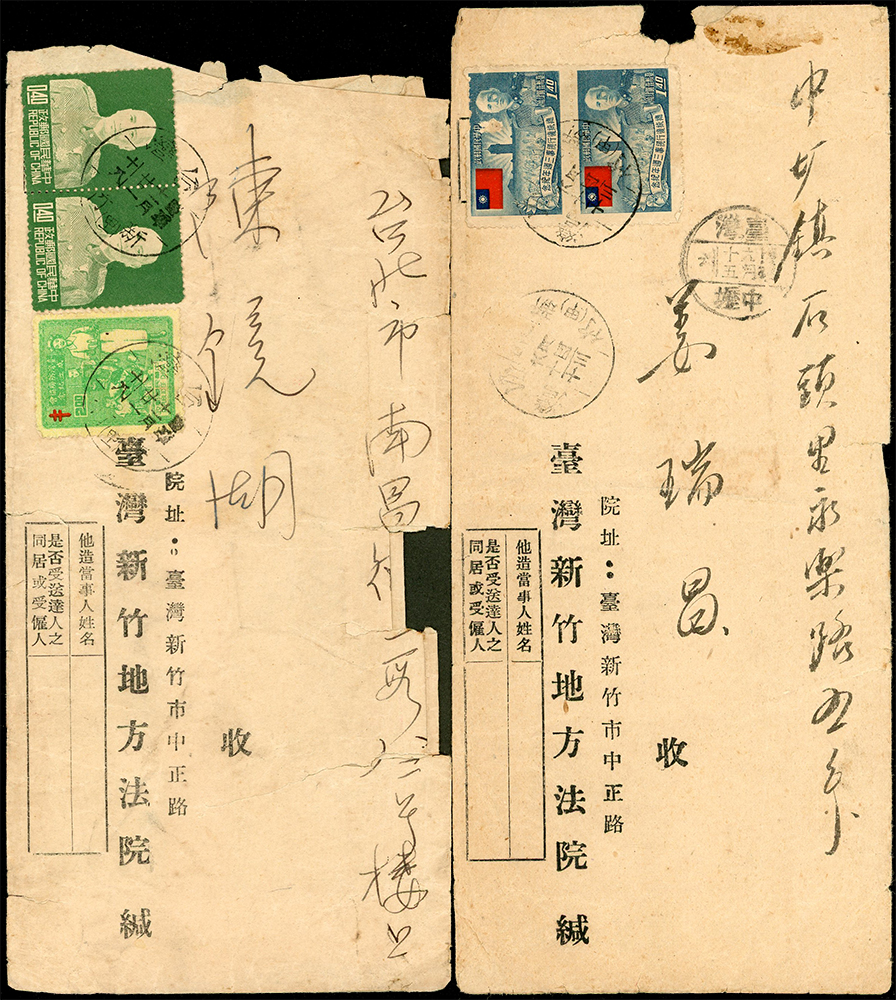 台北市南昌街二段
樓上
陳鏡湖
收
院址:臺灣新竹市中正路
臺灣新竹地方法院緘
他造當事人姓名
是否受送達人之
同居或受僱人
中華民國郵政
REPUBLIC OF CHINA
0.40
中華民國郵政
REPUBLIC OF CHINA
0.40
中壢鎮石頭里永樂路五号
姜瑞昌
收
院址:臺灣新竹市中正路
臺灣新竹地方法院緘
他造當事人姓名
是否受送達人之
同居或受僱人
1.40
總統復行視事三週年紀念
1.40
總統復行視事三週年紀念
臺灣
中壢